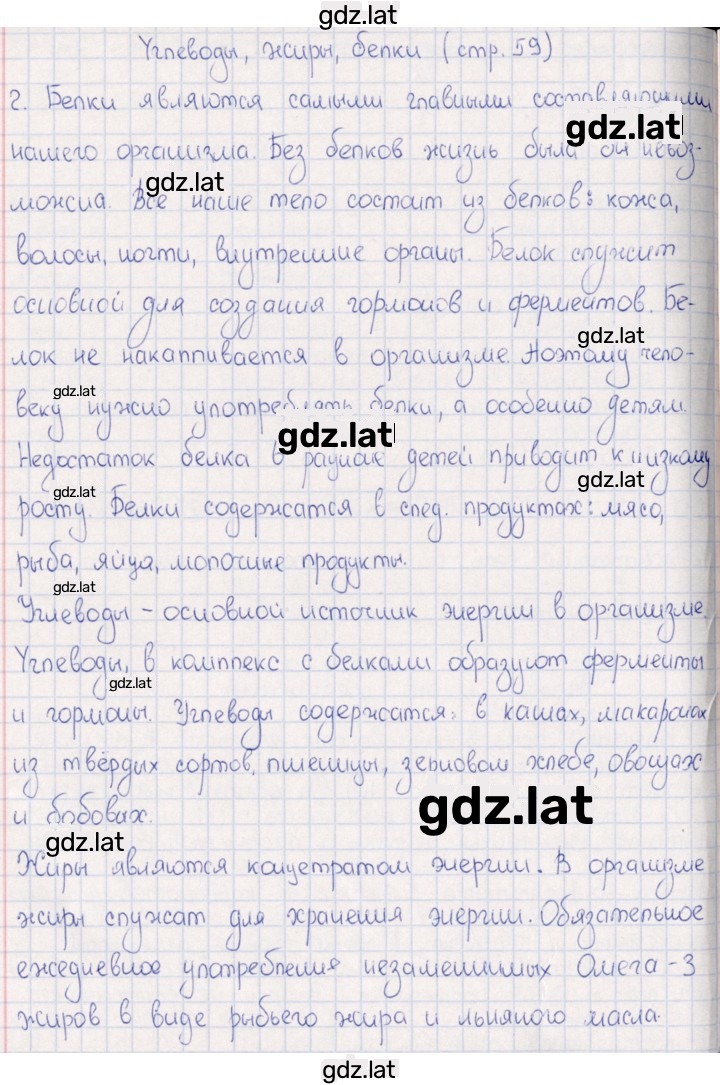 gdz.lat
Углеводы, жиры, белки (стр. 59)
2. Белки являются самыми главными составляющими
gdz.lat
нашего организма. Без белков жизнь была бы невоз-
gdz.lat
можна. Все наше тело состоит из белков: кожа,
волосы, ногти, внутренние органы. Белок служит
основной для создания гормонов и ферментов. Бе-
gdz.lat
лок не накапливается в организме. Поэтому чело-
gdz.lat
веку нужно употреблять белки, а особенно детям.
gdz.lat
Недостаток белка в рационе детей приводит к низкому
gdz.lat
gdz.lat
росту. Белки содержатся в след. продуктах: мясо,
рыба, яйца, молочные продукты.
gdz.lat
Углеводы - основной источник энергии в организме.
Углеводы, в комплекс с белками образуют ферменты
gdz.lat
и гормоны. Углеводы содержатся: в кашах, макаронах
из твёрдых сортов пшеницы, зерновом хлебе, овощах
и бобовых.
gdz.lat
gdz.lat
Жиры являются концетратом энергии. В организме
жиры служат для хранения энергии. Обязательное
ежедневное употребления незаменимых Омега-3
жиров в виде рыбьего жира и льняного масла.
gdz.lat